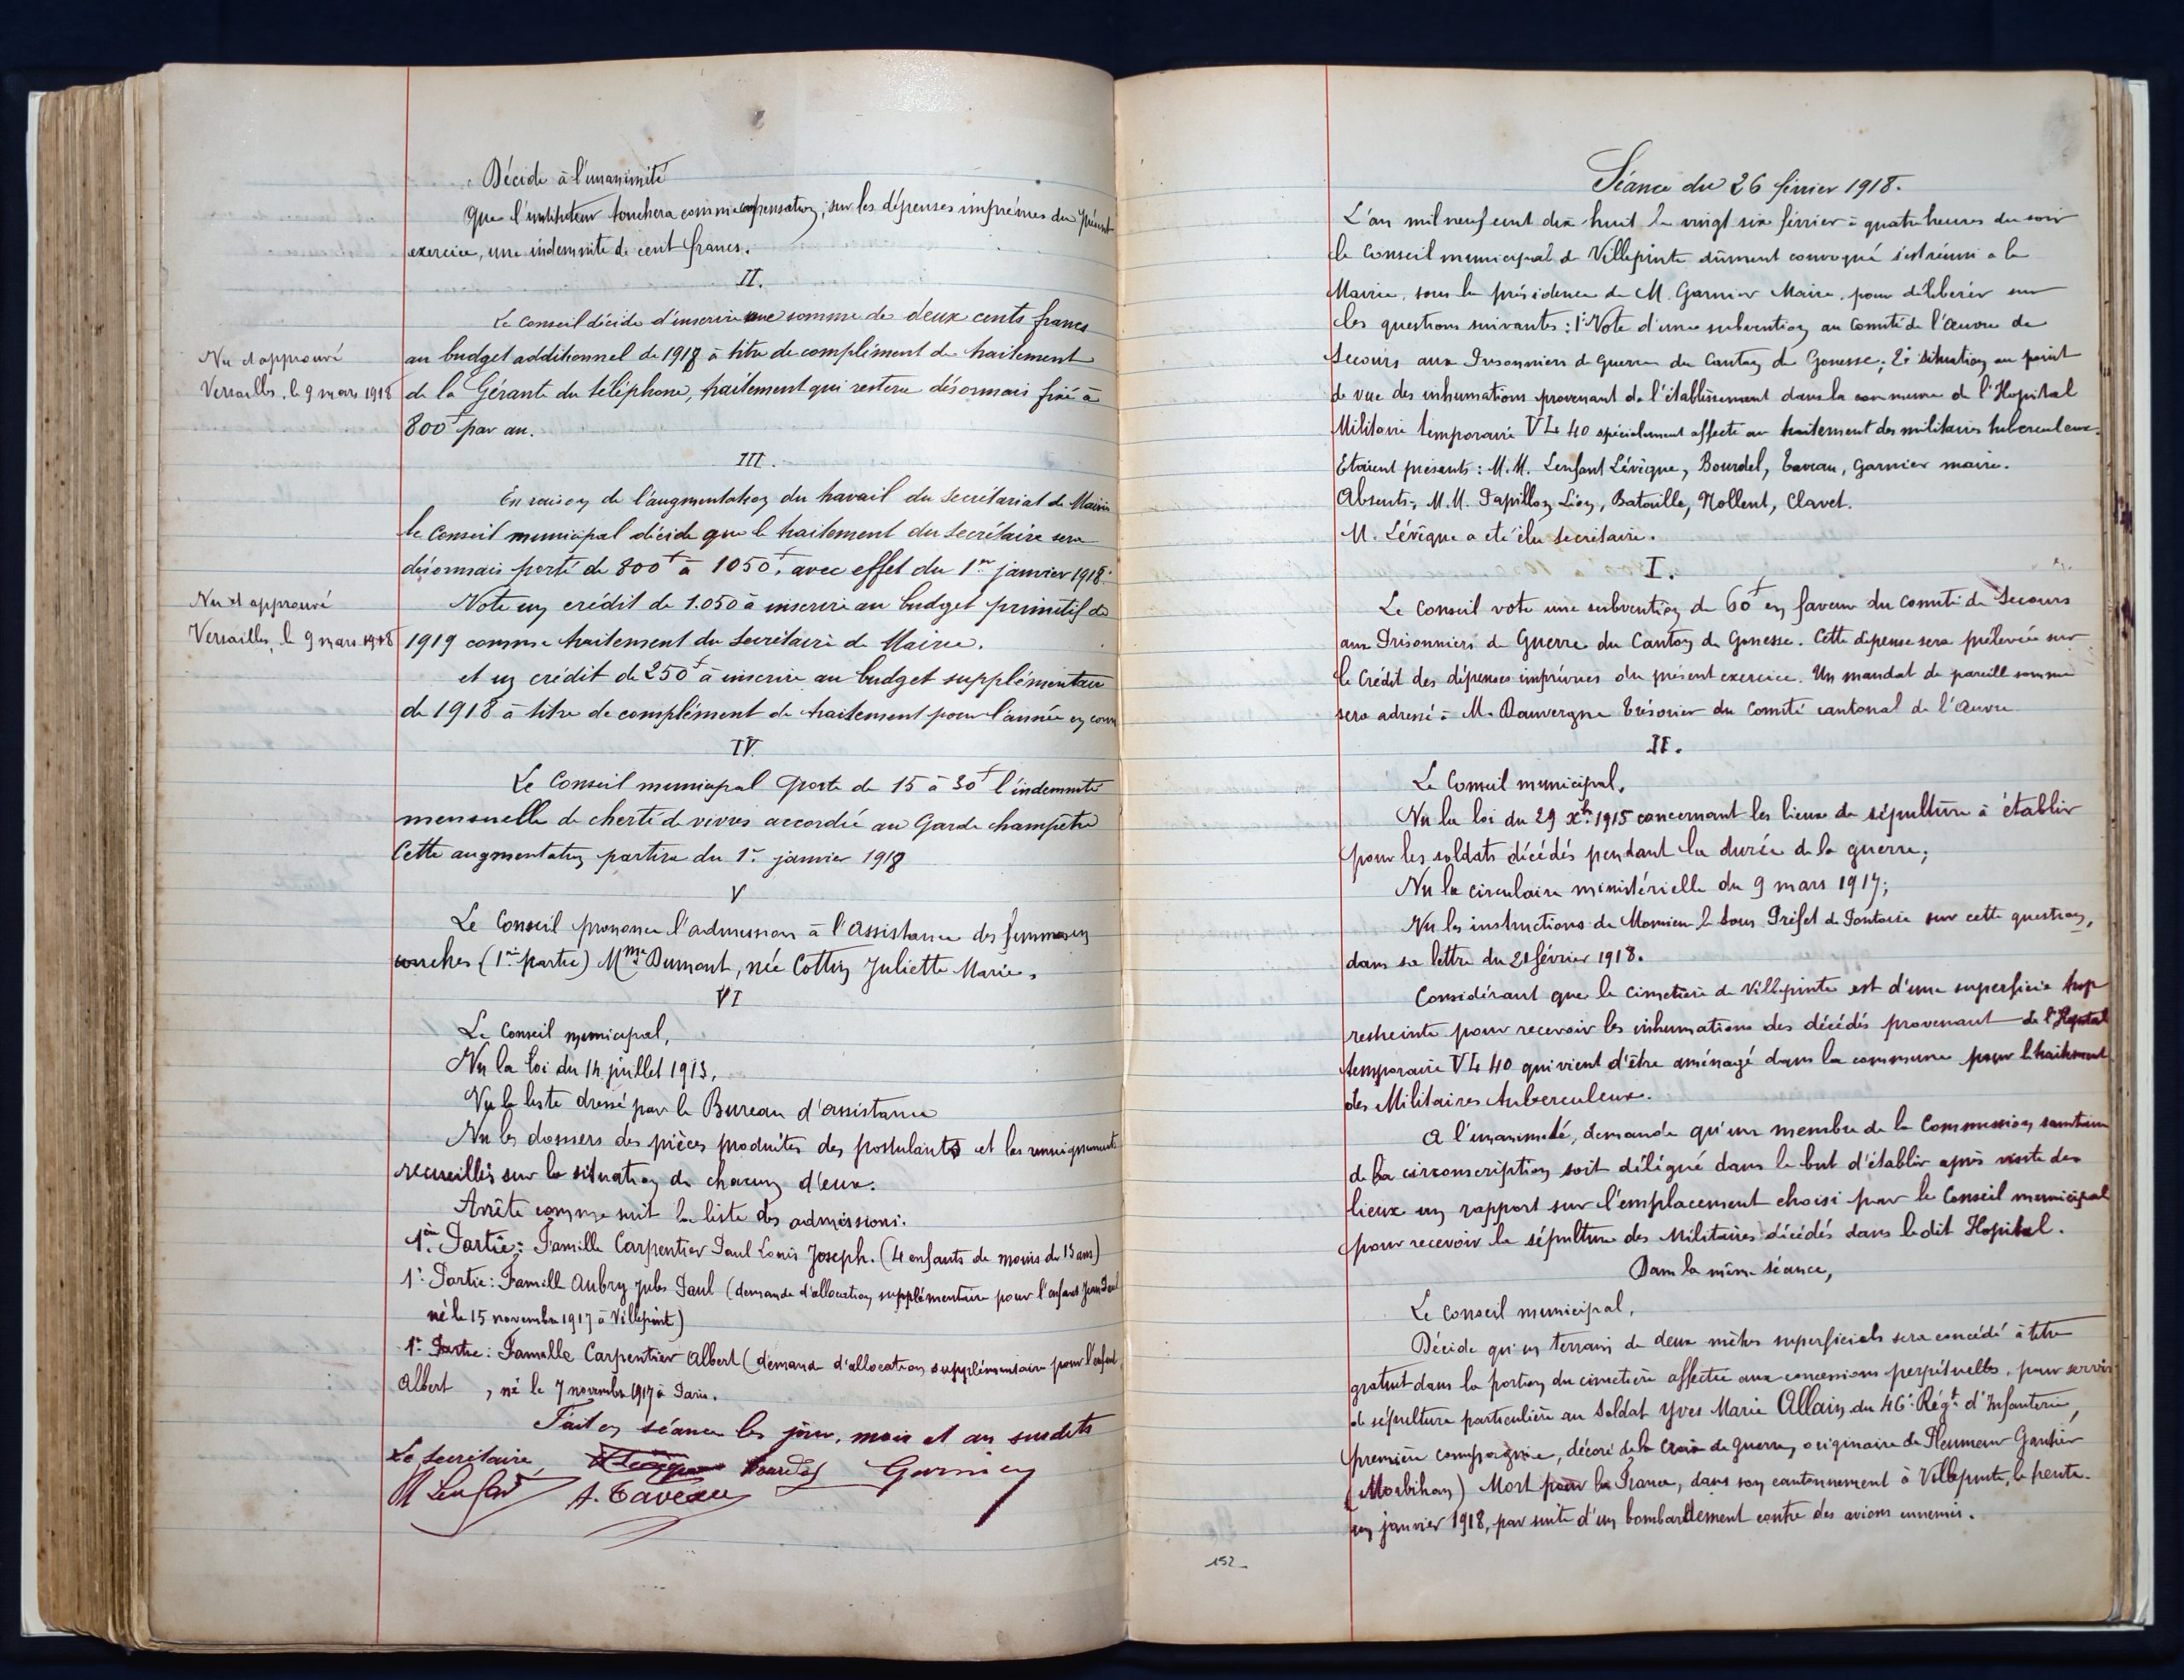 Décide à l'unanimité
que l'instituteur touchera comme compensation, sur les dépenses imprévues du présent
exercice, une indemnité de cent francs.
II.
Le Conseil décide d'inscrire une somme de deux cents francs
au budget additionnel de 1918 à titre de complément de traitement
de la Gérante du téléphone, traitement qui restera désormais fixé à
800f par an.
Vu et approuvé
Versailles, le 9 mars 1918
III.
En raison de l'augmentation du travail du Secrétariat de Mairie
le Conseil municipal décide que le traitement du Secrétaire sera
désormais porté de 800f à 1050f, avec effet du 1er janvier 1918.
Vote un crédit de 1.050 à inscrire au budget primitif de
1919 comme traitement du Secrétaire de Mairie.
et un crédit de 250f à inscrire au budget supplémentaire
de 1918 à titre de complément de traitement pour l'année en cours
Vu et approuvé
Versailles, le 9 mars 1918
IV.
Le Conseil municipal porte de 15 à 30f l'indemnité
mensuelle de cherté de vivres accordée au Garde champêtre
Cette augmentation partira du 1er janvier 1918
V
Le Conseil prononce l'admission à l'Assistance des femmes en
couches (1ère partie) Mme Dumont, née Cottin Juliette Marie.
VI
Le Conseil municipal,
Vu la loi du 14 juillet 1913,
Vu la liste dressé par le Bureau d'assistance
Vu les dossiers des pièces produites des postulants et les renseignements
recueillis sur la situation de chacun d'eux.
Arrête comme suit la liste des admissions.
1ère Partie: Famille Carpentier Paul Louis Joseph. (4 enfants de moins de 13 ans)
1e Partie: Famille Aubry Jules Paul (demande d'allocation supplémentaire pour l'enfant Jean Paul
né le 15 novembre 1917 à Villepint)
1e Partie: Famille Carpentier Albert (demande d'allocation supplémentaire pour l'enfant
Albert , né le 7 novembre 1917 à Paris.
Fait en séance les jour, mois et an susdits
Le Secrétaire, Lévêque Bourdel Garnier
Lenfant A. Taveau
Séance du 26 février 1918.
L'an mil neuf cent dix huit le vingt six février à quatre heures du soir
le Conseil municipal de Villepinte dûment convoqué s'est réuni à la
Mairie, sous la présidence de M. Garnier Maire, pour délibérer sur
les questions suivantes: 1° Vote d'une subvention au Comité de l'Œuvre de
Secours aux Prisonniers de Guerre du Canton de Gonesse; 2° situation au point
de vue des inhumations provenant de l'établissement dans la commune de l'Hopital
Militaire temporaire V L 40 spécialement affecté au traitement des militaires tuberculeux.
Etaient présents: M.M. Lenfant Lévêque, Bourdel, Taveau, Garnier maire.
Absents, M.M. Papillon, Lion, Bataille, Nollent, Clavet.
M. Lévêque a été élu Secrétaire.
I.
Le Conseil vote une subvention de 60f en faveur du Comité de Secours
aux Prisonniers de Guerre du Canton de Gonesse. Cette dépense sera prélevée sur
le Crédit des dépenses imprévues du présent exercice. Un mandat de pareille somme
sera adressé à M. Dauvergne Trésorier du Comité cantonal de l'Œuvre
II.
Le Conseil municipal,
Vu la loi du 29 xbre 1915 concernant les lieux de sépulture à établir
pour les soldats décédés pendant la durée de la guerre;
Vu la circulaire ministérielle du 9 mars 1917;
Vu les instructions de Monsieur le Sous Préfet de Pontoise sur cette question,
dans sa lettre du 21 février 1918.
Considérant que le Cimetière de Villepinte est d'une superficie trop
restreinte pour recevoir les inhumations des décédés provenant de l'Hopital
temporaire V L 40 qui vient d'être aménagé dans la commune pour le traitement
des Militaires tuberculeux.
A l'unanimité, demande qu'un membre de la Commission sanitaire
de la circonscription soit délégué dans le but d'établir après visite des
lieux un rapport sur l'emplacement choisi par le Conseil municipal
pour recevoir la sépulture des Militaires décédés dans ledit Hopital.
Dans la même séance,
Le Conseil municipal,
Décide qu'un terrain de deux mètres superficiels sera concédé à titre
gratuit dans la portion du cimetière affectée aux concessions perpétuelles, pour servir
de sépulture particulière au Soldat Yves Marie Allain du 46e Régt d'Infanterie,
première compagnie, décoré de la Croix de Guerre, originaire de Pleumeur Gautier
(Morbihan) Mort pour la France, dans son cantonnement à Villepinte, le trente-
un janvier 1918, par suite d'un bombardement contre des avions ennemis.
152